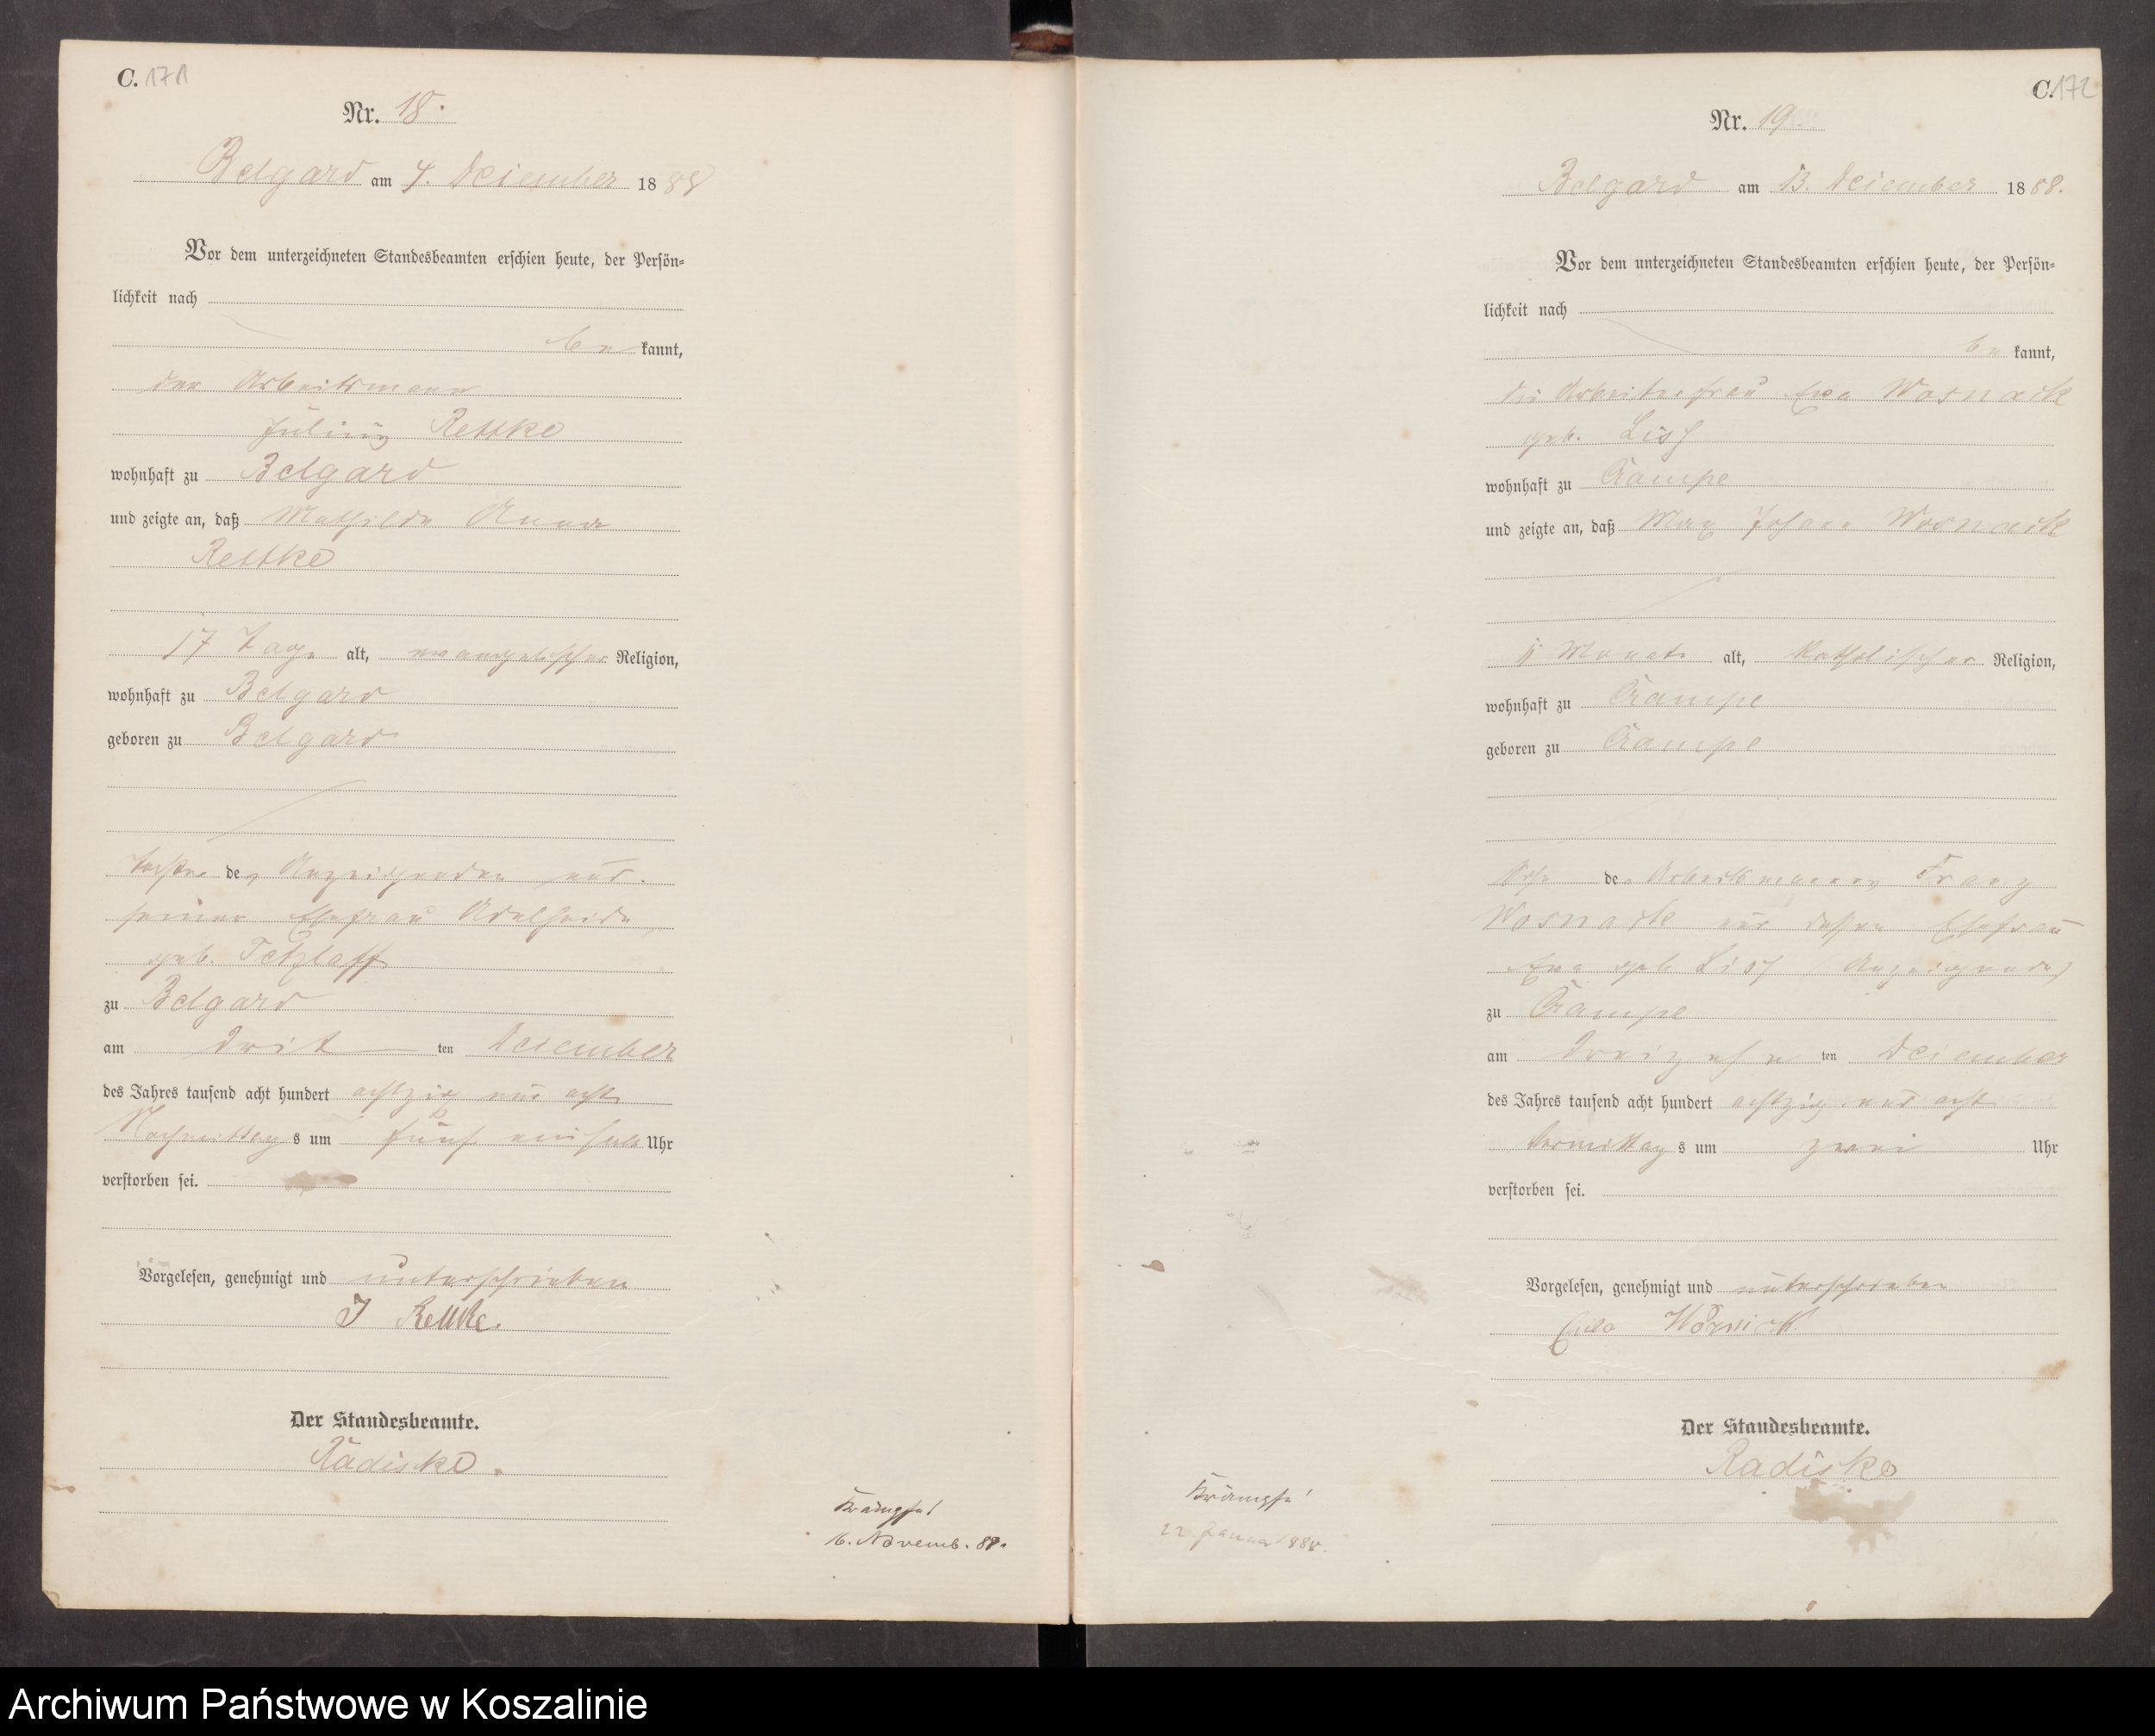 C. 171
Nr. 18.
Belgard am 4. December 1888
Vor dem unterzeichneten Standesbeamten erschien heute, der Persön=
lichkeit nach
be kannt,
der Arbeitsmann
Julius Rettke
wohnhaft zu Belgard
und zeigte an, daß Mathilde Anna
Rettke
17 Tage alt, evangelischer Religion,
wohnhaft zu Belgard
geboren zu Belgard
Tochter des Anzeigenden und
seiner Ehefrau Adelheide,
geb. Tetzlaff
zu Belgard
am Drit ten December
des Jahres tausend acht hundert achtzig und acht
Nachmittag s um fünf einhalb Uhr
verstorben sei.
Vorgelesen, genehmigt und unterschrieben
J Rettke.
Der Standesbeamte.
Radiske.
Krämpfe!
16. Novemb. 88.
C. 172
Nr. 19
Belgard am 13. December 1888.
Vor dem unterzeichneten Standesbeamten erschien heute, der Persön=
lichkeit nach
be kannt,
die Arbeiterfrau Eva Wosnack
geb. Lisch
wohnhaft zu Crampe
und zeigte an, daß Max Johann Wosnack
11 Monate alt, katholischer Religion,
wohnhaft zu Crampe
geboren zu Crampe
Sohn des Arbeitsmanns Franz
Wosnack und dessen Ehefrau
Eva geb Lisch (Anzeigende)
zu Crampe
am Dreizehn ten December
des Jahres tausend acht hundert achtzig und acht
Vormittag s um zwei Uhr
verstorben sei.
Vorgelesen, genehmigt und unterschrieben
Der Standesbeamte.
Radiske
Krämpfe!
22. Januar 1888.
Archiwum Państwowe w Koszalinie